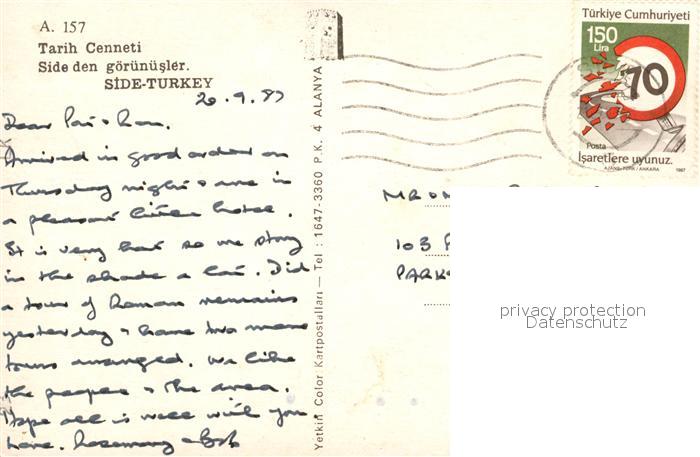 A. 157
Tarih Cenneti
Side den görünüşler.
SİDE-TURKEY
20.9.87
Dear Pat & Ron.
Arrived in good order on
Thursday night & are in
a pleasant little hotel.
It is very hot so we stay
in the shade a lot. Did
a tour of Roman remains
yesterday & have two more
tours arranged. We like
the people & the area.
Hope all is well with you
Love. Rosemary & Bob
Yetkin Color Kartpostalları — Tel : 1647-3360 P.K. 4 ALANYA
Türkiye Cumhuriyeti
150
Lira
70
Posta
İşaretlere uyunuz.
AJANS-TÜRK / ANKARA 1987
MR
103
PARK
privacy protection
Datenschutz